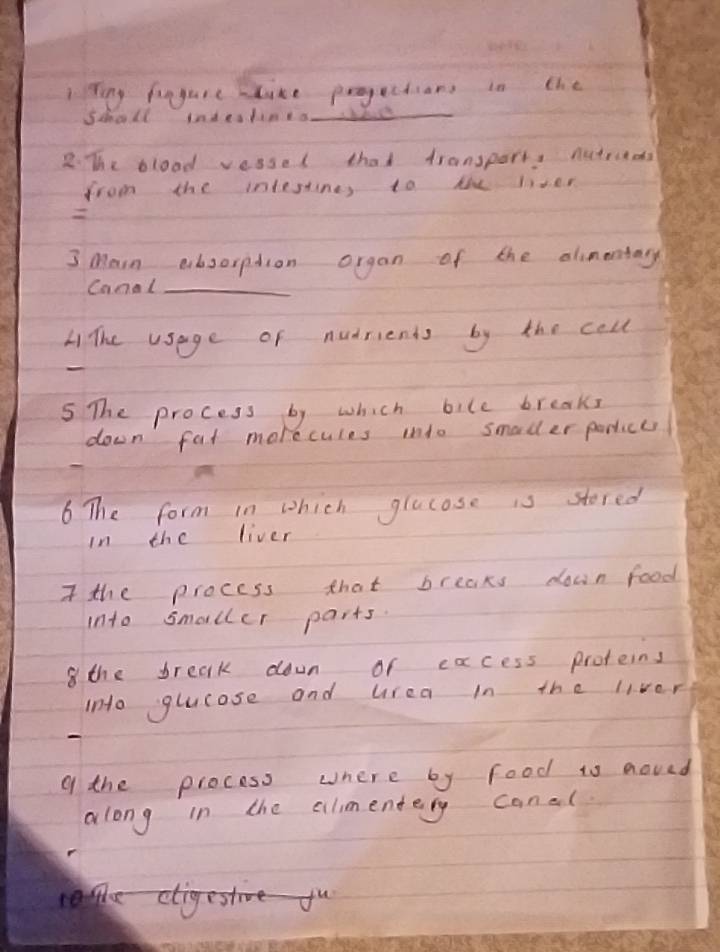 1 Tiny fingure like projections in the
small indestines
2. The blood vessel that transports nutrients
from the intestines to the liver
=
3 Main absorption organ of the alimentary
canal
4 The usage of nutrients by the cell
-
5 The process by which bile breaks
down fat molecules into smaller particles
-
6 The form in which glucose is stored
in the liver
7 the process that breaks down food
into smaller parts.
8 the break down of excess proteins
into glucose and urea in the liver
-
9 the process where by food is moved
along in the alimentery canal.
-
10 The digestive ju